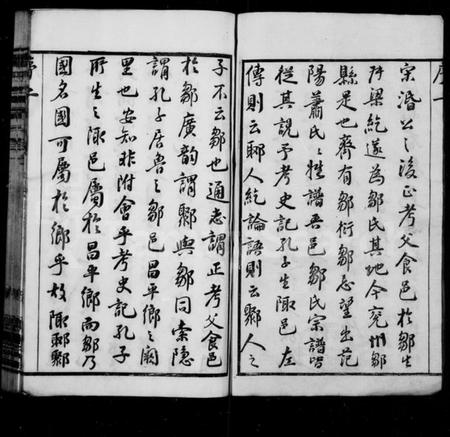 序一
宋湣公之後正考父食邑於鄒生
叶梁紇遂為鄒氏其地今兖州鄒
縣是也齊有鄒衍鄒忌望出范
陽蕭氏之姓譜吾邑鄒氏宗譜唱
從其說予考史記孔子生陬邑左
傳則云郰人紇論語則云鄹人之
子不云鄒也通志謂正考父食邑
於鄒廣韵謂鄹與鄒同索隐
謂孔子居魯之鄒邑昌平鄉之闕
里也安知非附會乎考史記孔子
所生之陬邑屬於昌平鄉而鄒乃
國名國可屬於鄉乎故陬郰鄹